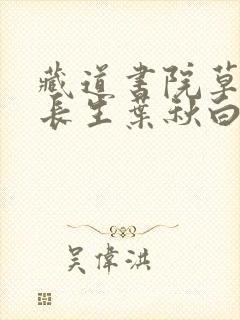 藏道書院草
長生葉秋白
吴偉洪